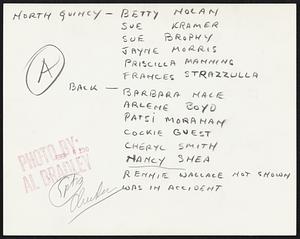 NORTH QUINCY - BETTY NOLAN
SUE KRAMER
SUE BROPHY
JAYNE MORRIS
PRISCILLA MANNING
FRANCES STRAZZULLA
A
BACK - BARBARA MACE
ARLENE BOYD
PATSI MORAHAN
COOKIE GUEST
CHERYL SMITH
NANCY SHEA
RENNIE WALLACE NOT SHOWN
WAS IN ACCIDENT
PHOTO BY:
AL BRADLEY